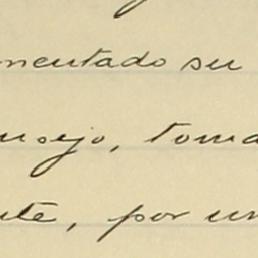 mentado su
nsejo, toma
nte, por un